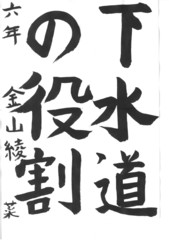 下水道
の役割
六年 金山綾菜